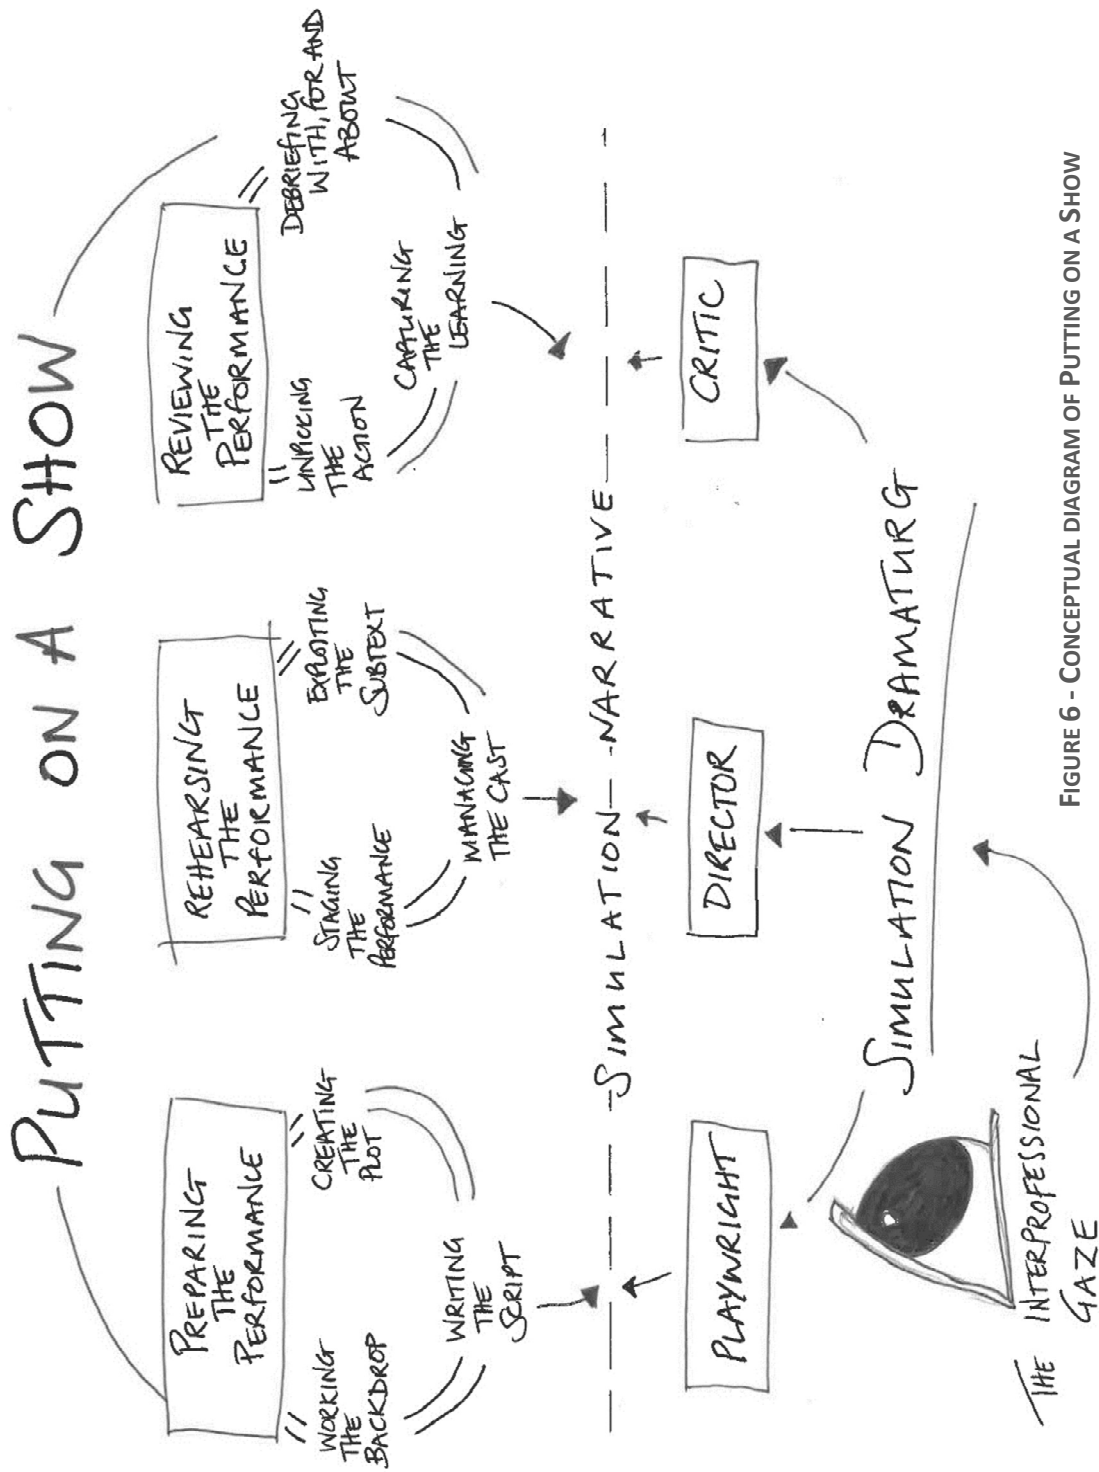 PUTTING ON A SHOW
PREPARING
THE
PERFORMANCE
WORKING
THE
BACKDROP
CREATING
THE
PLOT
WRITING
THE
SCRIPT
REHEARSING
THE
PERFORMANCE
STAGING
THE
PERFORMANCE
EXPLOITING
THE
SUBTEXT
MANAGING
THE CAST
REVIEWING
THE
PERFORMANCE
UNPICKING
THE
ACTION
DEBRIEFING
WITH, FOR AND
ABOUT
CAPTURING
THE
LEARNING
SIMULATION NARRATIVE
PLAYWRIGHT
DIRECTOR
CRITIC
SIMULATION DRAMATURG
THE INTERPROFESSIONAL
GAZE
FIGURE 6 - CONCEPTUAL DIAGRAM OF PUTTING ON A SHOW